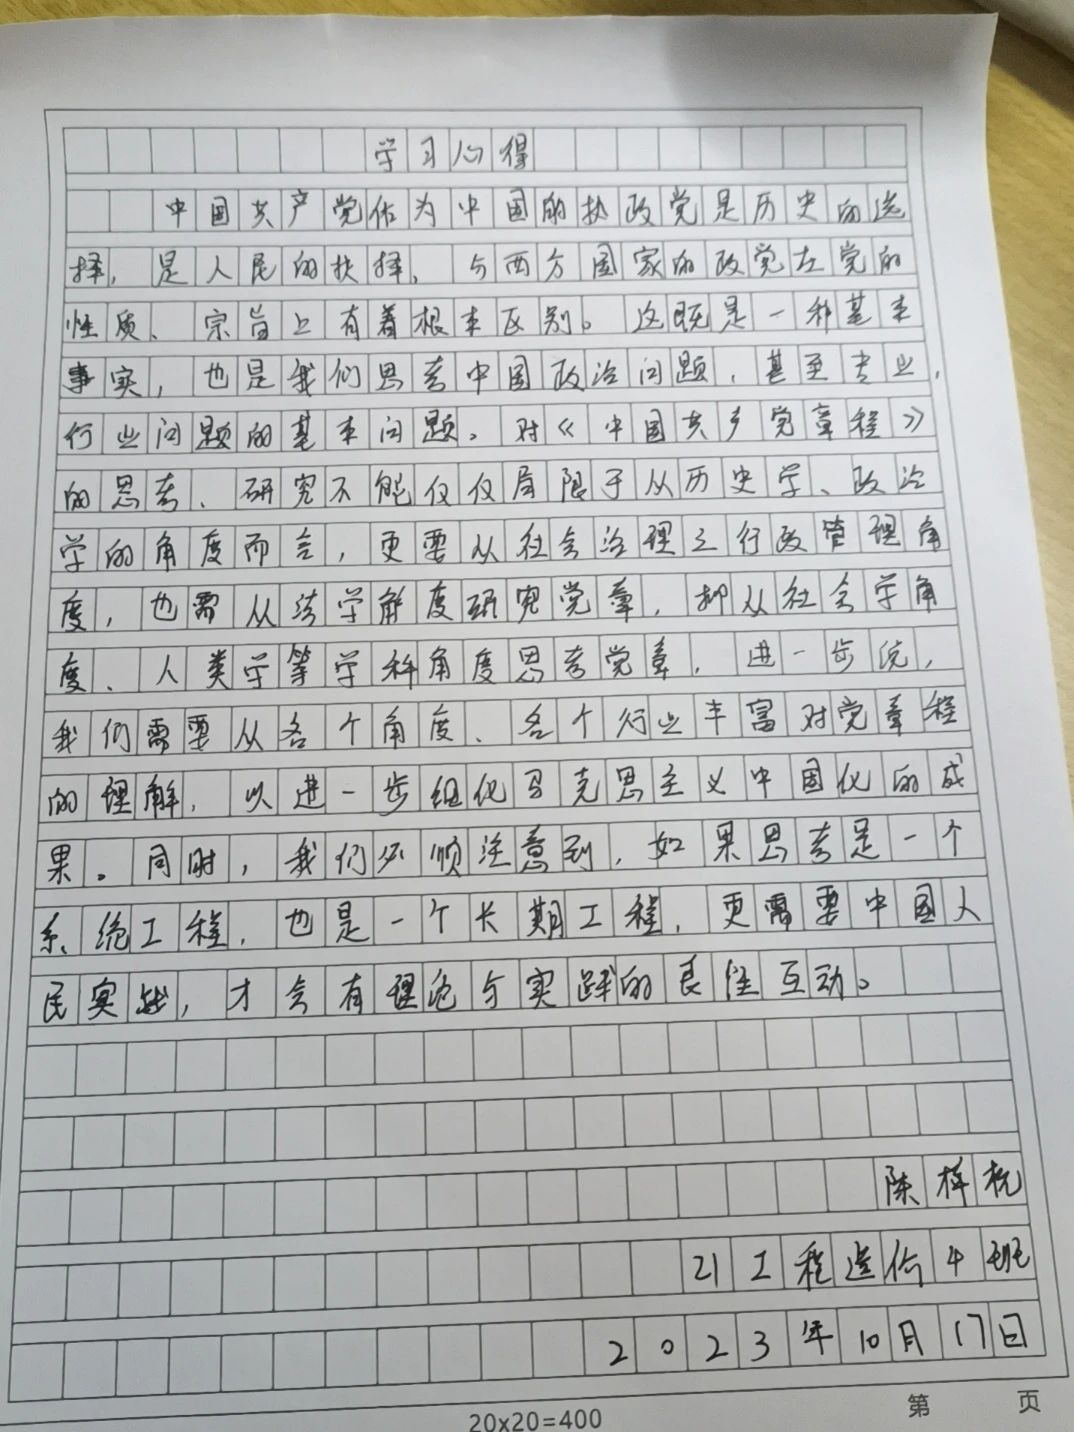 学习心得
中国共产党作为中国的执政党是历史的选
择，是人民的抉择，与西方国家的政党在党的
性质、宗旨上有着根本区别。这既是一种基本
事实，也是我们思考中国政治问题，甚至专业，
行业问题的基本问题。对《中国共产党章程》
的思考、研究不能仅仅局限于从历史学、政治
学的角度而言，更要从社会治理之行政管理角
度，也需从法学解度研究党章，抑从社会学角
度、人类学等学科角度思考党章，进一步说，
我们需要从各个角度、各个行业丰富对党章程
的理解，以进一步组化马克思主义中国化的成
果。同时，我们必须注意到，如果思考是一个
系统工程，也是一个长期工程，更需要中国人
民实践，才会有理论与实践的良性互动。
陈梓杭
21工程造价4班
2023年10月17日
第 页
20x20=400